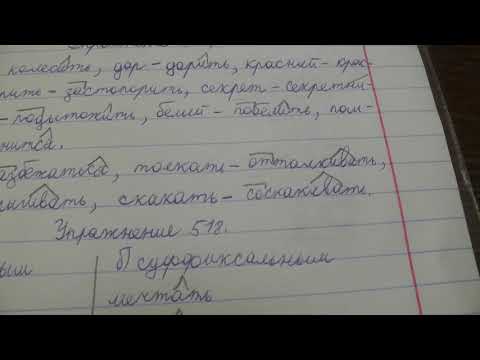 колесить, дар - дарить, красный - крас-
пить - застопорить, секрет - секретни-
- подытожить, белый - побелить, пом-
нится.
азбежаться, толкать - отталкивать,
гивать, скакать - соскакивать.
Упражнение 518.
ым
б) суффиксальным
мечтать